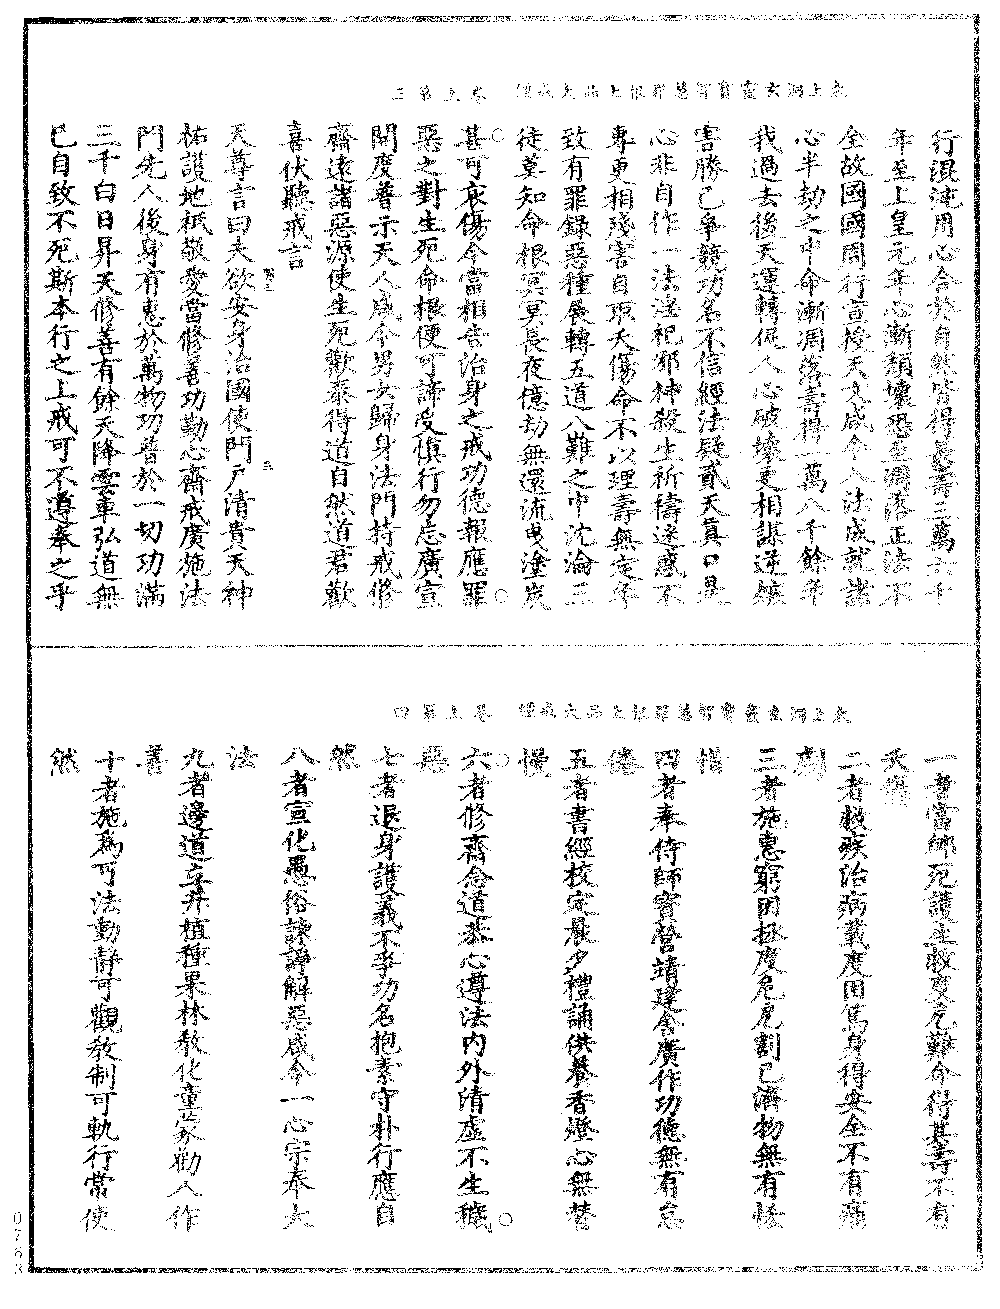 太上洞玄靈寶智慧罪根上品大戒經 卷上第三
行混沌用心合於自然皆得長壽三萬六千
年至上皇元年心漸頹壞恐至凋落正法不
全故國國周行宣授天文咸令入法成就諸
心半劫之中命漸凋落壽得一萬八千餘年
我過去後天運轉促人心破壞更相謀逆嫉
害勝己爭競功名不信經法疑貳天真口是
心非自作一法淫祀邪神殺生祈禱迷惑不
專更相殘害自取夭傷命不以理壽無定年
致有罪錄惡種展轉五道八難之中沈淪三
徒莫知命根冥冥長夜億劫無還流曳塗炭
甚可哀傷今當相告治身之戒功德報應罪
惡之對生死命根便可諦受慎行勿忘廣宣
開度普示天人咸令男女歸身法門持戒修
齋遠諸惡源使生死歡泰得道自然道君歡
喜伏聽戒言
天尊言曰夫欲安身治國使門戶清貴天神
祐護地祇敬愛當修善功勤心齋戒廣施法
門先人後身有惠於萬物功普於一切功滿
三千白日昇天修善有餘天降雲車弘道無
已自致不死斯本行之上戒可不遵奉之乎
太上洞玄靈寶智慧罪根上品大戒經 卷上第四
一者當卹死護生救度厄難命得其壽不有
夭傷
二者救疾治病載度困篤身得安全不有痛
劇
三者施惠窮困拯度危厄割己濟物無有悋
惜
四者奉侍師寶營靖建舍廣作功德無有怠
倦
五者書經校定晨夕禮誦供養香燈心無替
慢
六者修齋念道恭心遵法內外清虛不生穢
惡
七者退身護義不爭功名抱素守朴行應自
然
八者宣化愚俗諫諍解惡咸令一心宗奉大
法
九者邊道立井植種果林教化童蒙勸人作
善
十者施為可法動靜可觀教制可軌行常使
然
0763